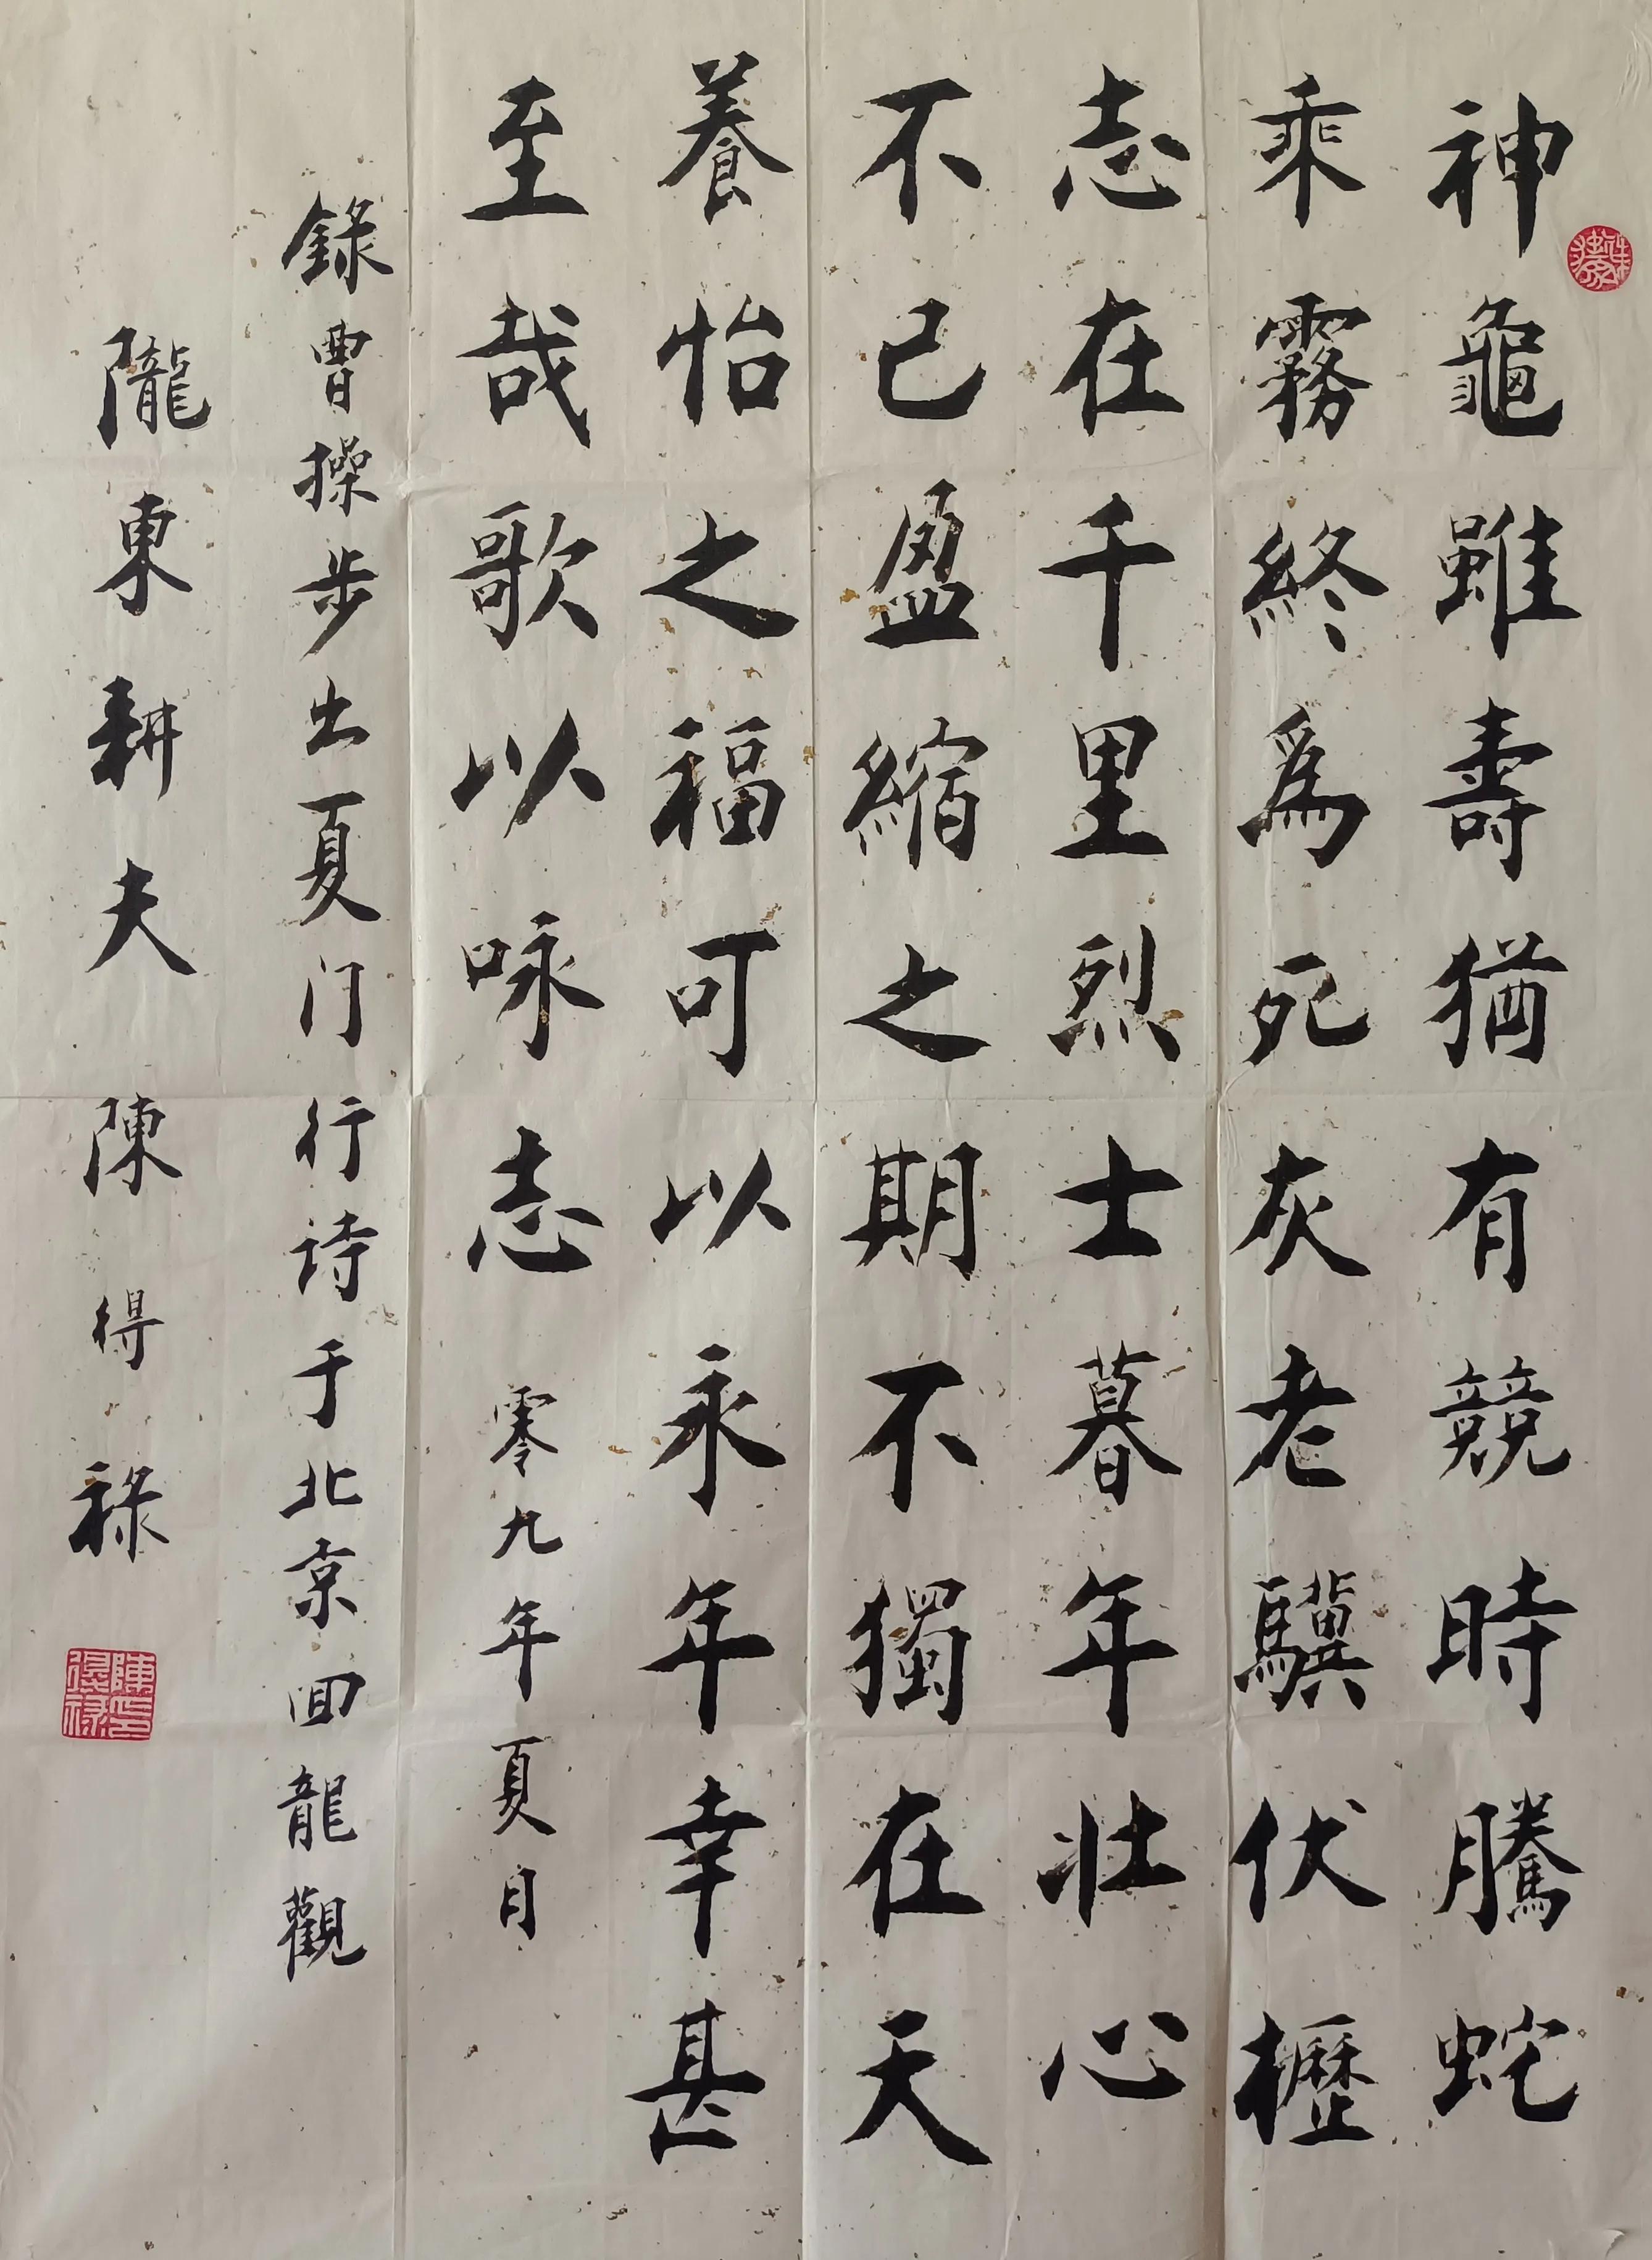 神龜雖壽猶有競時騰蛇
乘霧終爲死灰老驥伏櫪
志在千里烈士暮年壯心
不已盈縮之期不獨在天
養怡之福可以永年幸甚
至哉歌以咏志 零九年夏月
錄曹操步出夏门行诗于北京回龍觀
隴東耕夫 陳得祿
陳印得祿